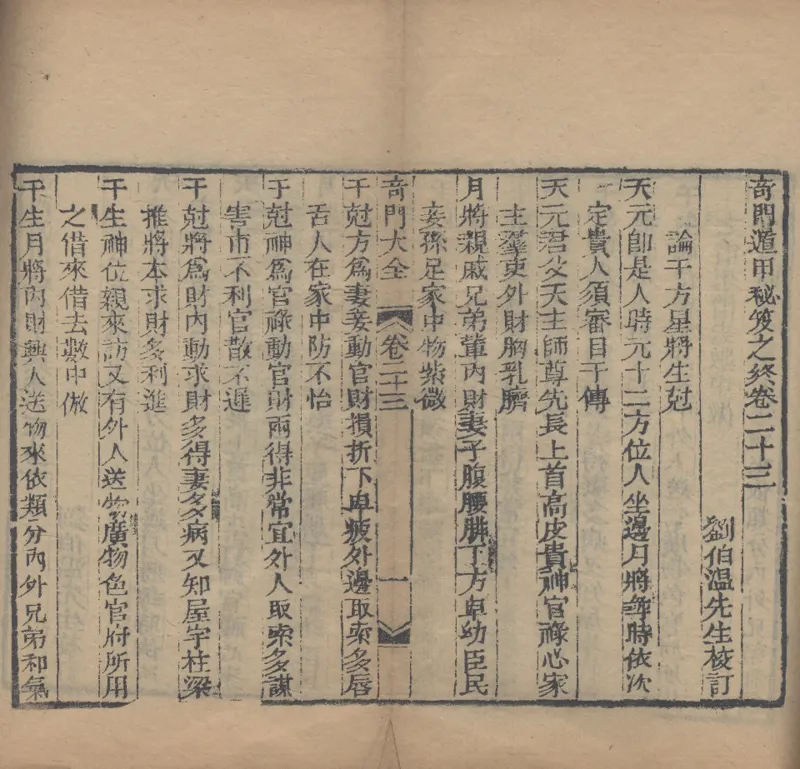 奇門遁甲秘笈之終卷二十三
劉伯溫先生校訂
論干方星將生尅
天元卽是人時元十二方位人坐邊月將每時依次
定貴人須審目干傳
天元君父天主師尊先長上首高皮貴神官祿心家
主羣吏外財胸乳臍
月將親戚兄弟輩內財妻子腹腰腓丁方卑幼臣民
妾孫足家中物紫微
奇門大全 卷二十三 一
干尅方爲妻妾動官財損折下卑疲外邊取索多唇
舌人在家中防不怡
干尅神爲官祿動官財兩得非常宜外人取索多謀
害市不利官散不遲
干尅將爲財內動求財多得妻多病又知屋宇柱梁
推將本求財多利進
干生神位親來訪又有外人送物廣物色官府所用
之借來借去數中倣
干生月將內財興人送物來依類分內外兄弟和氣